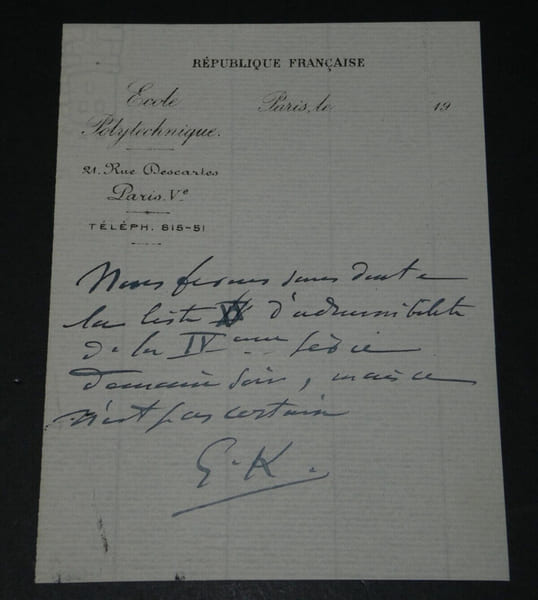 RÉPUBLIQUE FRANÇAISE
Ecole Paris, le 19
Polytechnique.
21. Rue Descartes
Paris. Vᵉ
TÉLÉPH. 615-51
Nous ferons sans doute
la liste d'admissibilité
de la IVème série
Demain soir, mais ce
n'est pas certain
G.K.